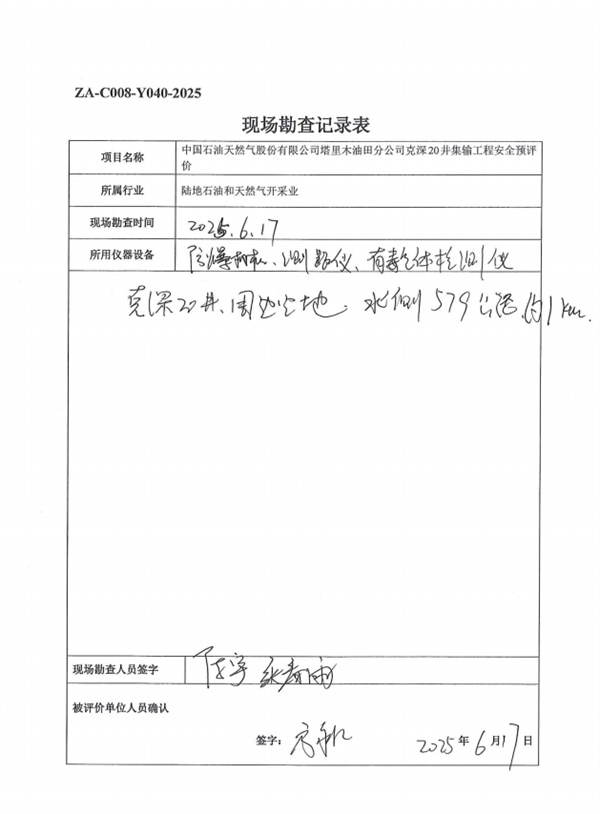 ZA-C008-Y040-2025
现场勘查记录表
项目名称
中国石油天然气股份有限公司塔里木油田分公司克深20井集输工程安全预评
价
所属行业
陆地石油和天然气开采业
现场勘查时间
2025.6.17
所用仪器设备
防爆相机、测距仪、有毒气体检测仪
克深20井、周边空地,水侧579公路,约1km.
现场勘查人员签字
陈宇
被评价单位人员确认
签字:
2025年6月17日